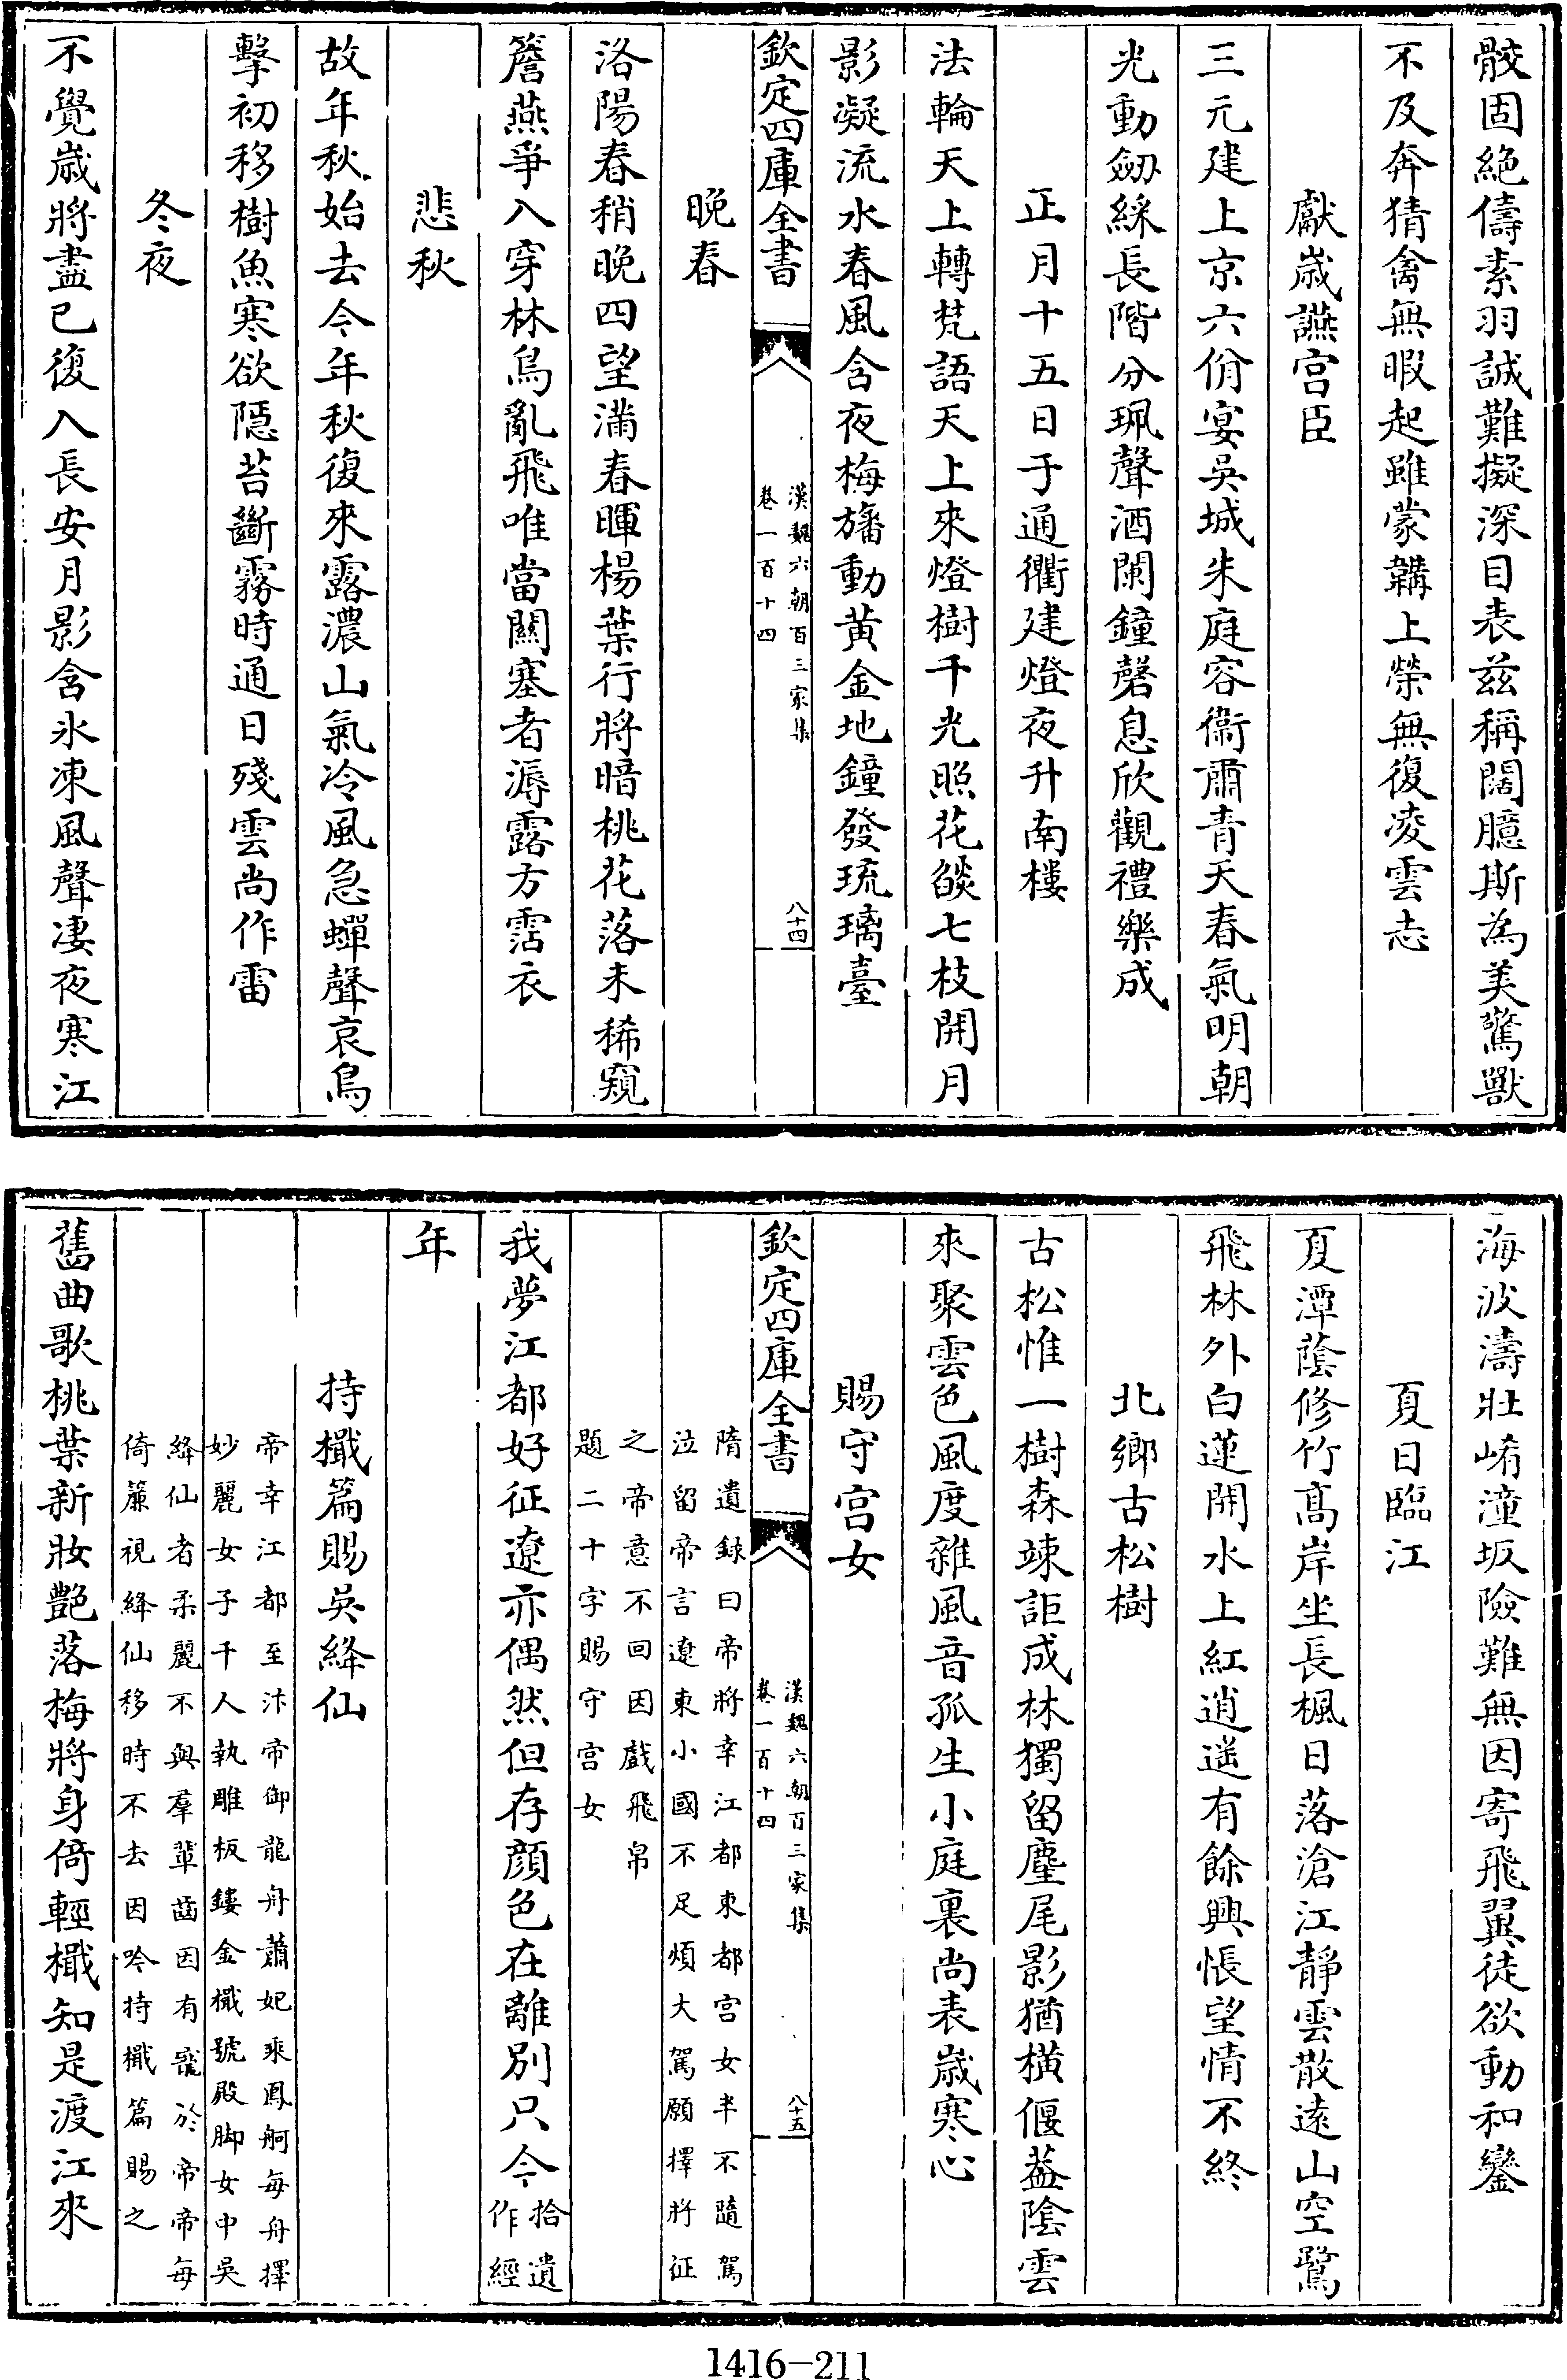 骹固絶儔素羽誠難擬深目表兹稱闊臆斯為美驚獸
不及奔猜禽無暇起雖蒙韝上榮無復凌雲志
獻歳讌宫臣
三元建上京六佾宴吳城朱庭容衞肅青天春氣明朝
光動劒綵長階分珮聲酒闌鐘磬息欣觀禮樂成
正月十五日于通衢建燈夜升南樓
法輪天上轉梵語天上來燈樹千光照花燄七枝開月
影凝流水春風含夜梅旛動黄金地鐘發琉璃臺
欽定四庫全書
漢魏六朝百三家集
卷一百十四
八十四
晚春
洛陽春稍晚四望滿春暉楊葉行將暗桃花落未稀窺
簷燕爭入穿林鳥亂飛唯當關塞者溽露方霑衣
悲秋
故年秋始去今年秋復來露濃山氣冷風急蟬聲哀鳥
擊初移樹魚寒欲隱苔斷霧時通日殘雲尚作雷
冬夜
不覺歳將盡已復入長安月影含氷凍風聲凄夜寒江
海波濤壯崤潼坂險難無因寄飛翼徒欲動和鑾
夏日臨江
夏潭䕃修竹髙岸坐長楓日落滄江靜雲散逺山空鷺
飛林外白蓮開水上紅逍遥有餘興悵望情不終
北鄉古松樹
古松惟一樹森竦詎成林獨留塵尾影猶横偃葢陰雲
來聚雲色風度雜風音孤生小庭裏尚表歳寒心
賜守宫女
欽定四庫全書
漢魏六朝百三家集
卷一百十四
八十五
隋遺録曰帝將幸江都東都宫女半不隨駕
泣留帝言遼東小國不足煩大駕願擇將征
之帝意不回因戲飛帛
題二十字賜守宫女
我夢江都好征遼亦偶然但存顔色在離別只今
拾遺
作經
年
持檝篇賜吳絳仙
帝幸江都至汴帝御龍舟蕭妃乘鳳舸每舟擇
妙麗女子千人執雕板鏤金檝號殿脚女中吳
絳仙者柔麗不與羣輩齒因有寵於帝帝每
倚簾視絳仙移時不去因吟持檝篇賜之
舊曲歌桃葉新妝艶落梅將身倚輕檝知是渡江來
1416-211